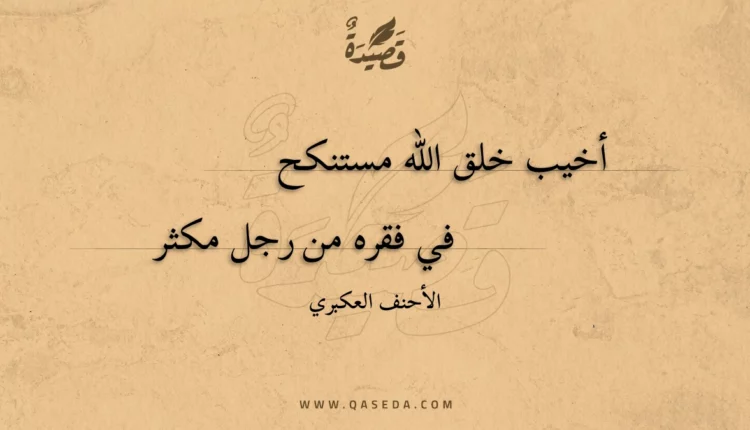 قَصِيدَةٌ
أخيب خلق الله مستنكح
في فقره من رجل مكثر
الأحنف العكبري
WWW.QASEDA.COM